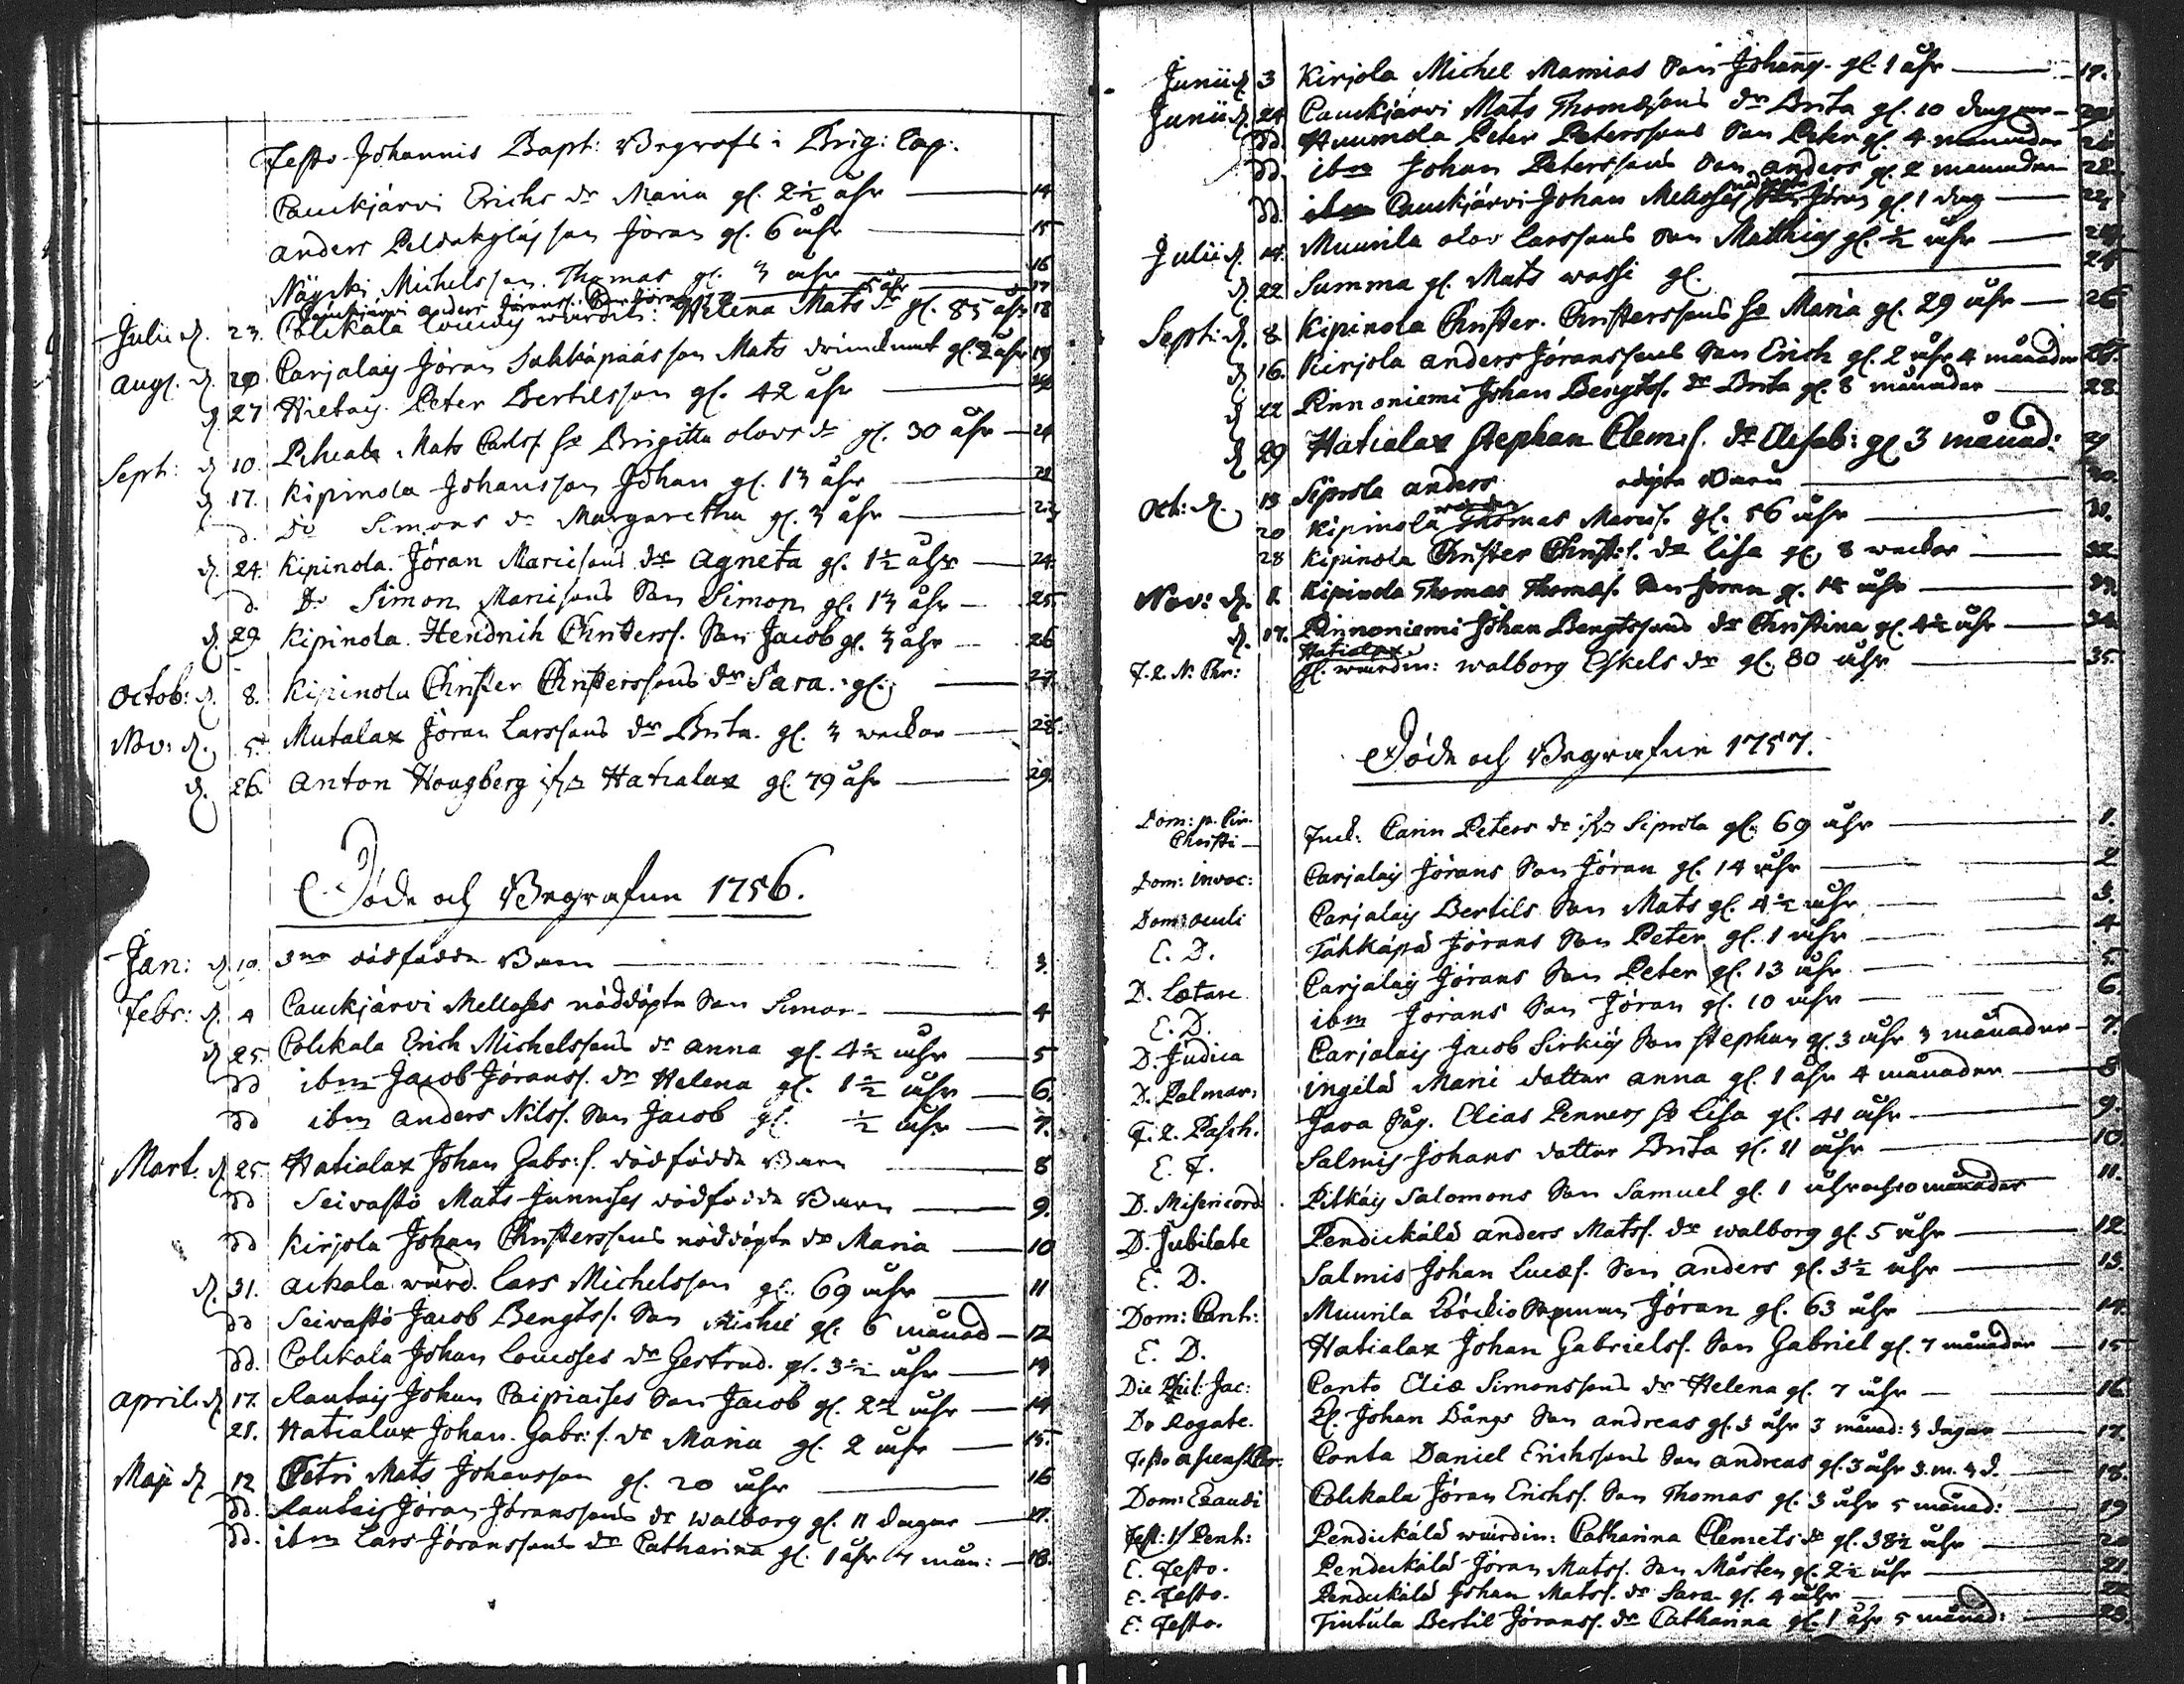 Festo Johannis Bapt: Begrofs i Brig: Cap:
Cauckjärvi Erichs dr Maria gl. 2½ åhr — 14
Anders Peldakyläs son Jöran gl. 6 åhr — 15
Näyski Michelsson Thomas gl. 3 åhr — 16
Cauckjärvi Anders Jöranss. Son Jöran 5 åhr — 17
Julii d. 23. Colckala wärdin: Helena Mats dr gl. 85 åhr 18
Aug. d. 20 Carjalais Jöran Sahkäpääs son Mats gl. 2 åhr 19
d. 27 Hietais Peter Bertilsson gl. 42 åhr — 20
Sept: d. 10. Mats Carlss. ho Brigitta Olovs dr gl. 30 åhr — 21
d. 17. Kipinola Johansson Johan gl. 13 åhr — 22
d. Do Simons dr Margaretha gl. 3 åhr — 23
d. 24. Kipinola Jöran Marcissons dr Agneta gl. 1½ åhr — 24.
d. Do Simon Marcissons Son Simon gl. 13 åhr — 25.
d. 29. Kipinola Hendrih Christerss. Son Jacob gl. 3 åhr — 26
Octob: d. 8. Kipinola Christer Christerssons dr Sara. gl. — 27.
Nov: d. 5. Mutalax Jöran Larssons dr Brita. gl. 3 weckor — 28.
d. 26. Anton Hougberg ifrån Hatialax gl. 79 åhr — 29.
Döde och Begrafne 1756.
Jan: d. 10. 3ne dödfödda Barn — 3.
Febr: d. 4 Cauckjärvi Melloses nöddöpte Son Simon — 4
d. 25. Colckala Erich Michelssons dr Anna gl. 4½ åhr — 5
dd ibm Jacob Jöranss. dr Helena gl. 1½ åhr — 6.
dd ibm Anders Nilss. Son Jacob gl. ½ åhr — 7.
Mart. d. 25. Hatialax Johan Gabr: s. dödfödda Barn — 8
dd Seivastö Mats Junnises dödfödda Barn — 9.
dd Kirjola Johan Christerssons nöddöpta dr Maria — 10
d. 31. Ackala wärd. Lars Michelsson gl. 69 åhr — 11
dd Seivastö Jacob Bengtss. Son Michel gl. 6 månad — 12
dd. Colckala Johan Loucoses dr Gertrud. gl. 3½ åhr — 13
April. d. 17. Rautais Johan Caipiaises Son Jacob gl. 2½ åhr — 14
21. Hatialax Johan Gabr: s. dr Maria gl. 2 åhr — 15.
Maji d. 12 Petri Mats Johansson gl. 20 åhr — 16
dd. Rautais Jöran Jöranssons dr Walborg gl. 11 dagar — 17.
dd. ibm Lars Jöranssons dr Catharina gl. 1 åhr 7 mån: — 18.
Junii d. 3 Kirjola Michel Mamias Son Johans gl. 1 åhr — 19.
Junii d. 24 Cauckjärvi Mats Thomæsons dr Brita gl. 10 dagar — 20
dd. Huumola Peter Peterssons Son Peter gl. 4 månader 21
dd. ibm Johan Peterssons Son Anders gl. 2 månader 22
dd. Cauckjärvi Johan Melloses nöddöpte Son Jöran gl. 1 dag — 23
Julii d. 14. Muurila Olov Larssons Son Mathias gl. ½ åhr — 24.
d. 22 Summa gl. Mats Wassi gl. — 25
Sept: d. 8. Kipinola Christer Christerssons ho Maria gl. 29 åhr — 26
d. 16. Kirjola Anders Jöranssons Son Erich gl. 2 åhr 4 månader 27.
d. 22 Pinnoniemi Johan Bengtss. dr Brita gl. 8 månader — 28.
d. 29 Hatialax Stephan Clem: s. dr Elisab: gl. 3 månad: 29
Oct: d. 13 Siprola Anders odöpta Barn — 30.
20 Kipinola wärden Thomas Marciss. gl. 56 åhr — 31.
28 Kipinola Christer Christ: s. dr Lisa gl. 8 weckor — 32.
Nov: d. 1. Kipinola Thomas Thomæs. Son Jöran gl. 15 åhr — 33.
d. 17. Pinnoniemi Johan Bengtssons dr Christina gl. 4½ åhr — 34.
F. 2. N. Chr: Hatialax gl. wärdin: Walborg Eskels dr gl. 80 åhr — 35.
Döde och Begrafne 1757.
Dom: p. Cir. Christi — Inch: Carin Peters dr ifrån Siprola gl. 69 åhr — 1.
Dom: Invoc: Carjalais Jörans Son Jöran gl. 14 åhr — 2
Dom: Oculi Carjalais Bertils Son Mats gl. 4½ åhr — 3.
E. D. Tähkäpä Jörans Son Peter gl. 1 åhr — 4
D. Lætare Carjalais Jörans Son Peter gl. 13 åhr — 5.
E. D. ibm Jörans Son Jöran gl. 10 åhr — 6.
D. Judica Carjalais Jacob Sirkiäs Son Stephan gl. 3 åhr 3 månader — 7.
D. Palmar: Ingilä Marci dotter Anna gl. 1 åhr 4 månader — 8
F. 2. Pasch. Java Såg. Elias Pennes ho Lisa gl. 41 åhr — 9.
E. F. Salmis Johans dotter Brita gl. 11 åhr — 10.
D. Misericord Pitkäis Salomons Son Samuel gl. 1 åhr och 10 månader 11.
D. Jubilate Penduckälä Anders Matss. dr Walborg gl. 5 åhr — 12
E. D. Salmis Johan Lucæs. Son Anders gl. 3½ åhr — 13.
Dom: Cant: Muurila Jöran gl. 63 åhr — 14.
E. D. Hatialax Johan Gabrielss. Son Gabriel gl. 7 månader — 15
Die Phil: Jac: Conto Eliæ Simonssons dr Helena gl. 7 åhr — 16.
Do Rogate. Johan Bångs Son Andreas gl. 3 åhr 3 månad: 3 dagar — 17.
Festo Ascens. Chr. Conta Daniel Erichssons Son Andreas gl. 3 åhr 3. m. 3 d. — 18.
Dom: Exaudi Colckala Jöran Erichss. Son Thomas gl. 3 åhr 5 månad: — 19
Fest: 1 Pent: Penduckälä wärdin: Catharina Clemets dr gl. 38½ åhr — 20
E. Festo. Penduckälä Jöran Matss. Son Mårten gl. 2½ åhr — 21
E. Festo. Penduckälä Johan Matss. dr Sara gl. 4 åhr — 22
E. Festo. Tintula Bertil Jöranss. dr Catharina gl. 1 åhr 5 månad: — 23.